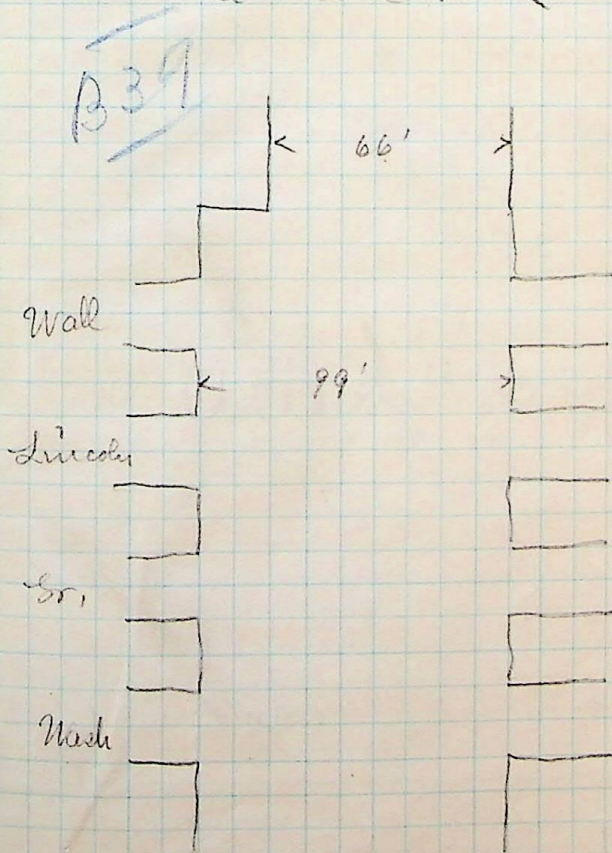 B39
66'
Wall
99'
Lincoln
Gr.
Wash